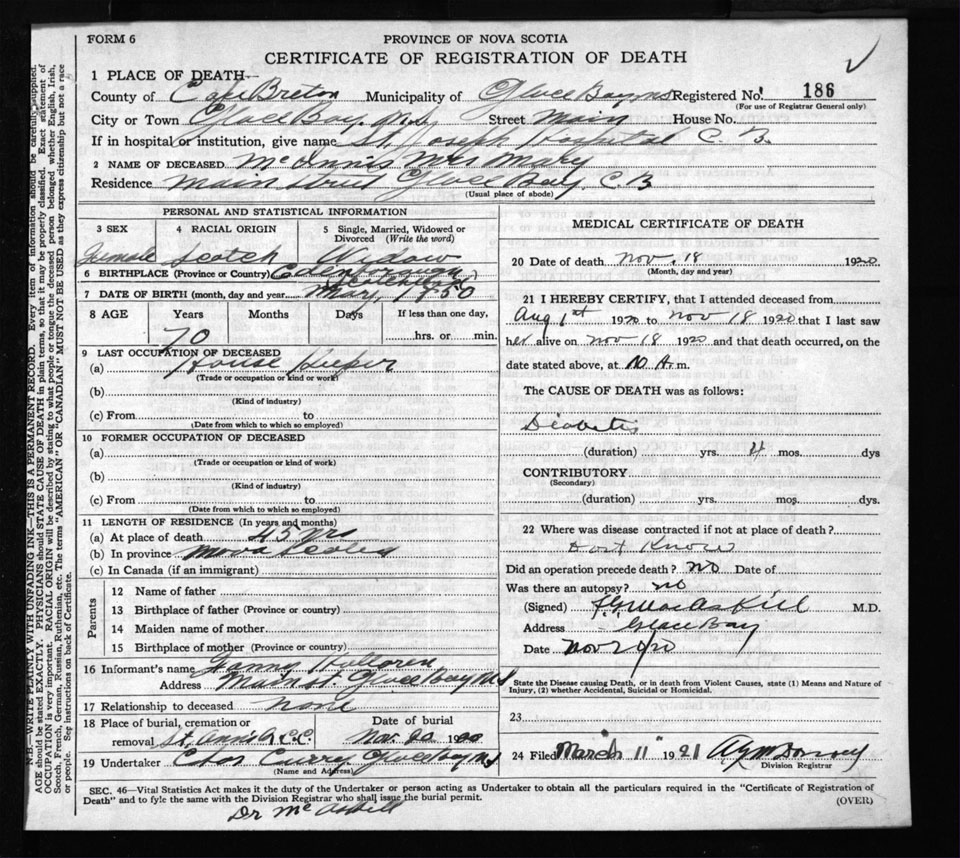 FORM 6
PROVINCE OF NOVA SCOTIA
CERTIFICATE OF REGISTRATION OF DEATH
1 PLACE OF DEATH—
County of Cape Breton Municipality of Glace Bay NS Registered No. 186
(For use of Registrar General only)
City or Town Glace Bay Street Main House No.
If in hospital or institution, give name St. Joseph Hospital C. B.
2 NAME OF DECEASED McInnis Mrs Mary
Residence Main Street Glace Bay C B
(Usual place of abode)
PERSONAL AND STATISTICAL INFORMATION
3 SEX 4 RACIAL ORIGIN 5 Single, Married, Widowed or Divorced (Write the word)
Female Scotch Widow
6 BIRTHPLACE (Province or Country)
7 DATE OF BIRTH (month, day and year) Mar, 1850
8 AGE Years Months Days If less than one day,
70 hrs. or min.
9 LAST OCCUPATION OF DECEASED
(a) House Keeper
(Trade or occupation or kind or work)
(b)
(Kind of industry)
(c) From to
(Date from which to which so employed)
10 FORMER OCCUPATION OF DECEASED
(a)
(Trade or occupation or kind of work)
(b)
(Kind of industry)
(c) From to
(Date from which to which so employed)
11 LENGTH OF RESIDENCE (In years and months)
(a) At place of death 45 yrs
(b) In province Nova Scotia
(c) In Canada (if an immigrant)
Parents
12 Name of father
13 Birthplace of father (Province or country)
14 Maiden name of mother
15 Birthplace of mother (Province or country)
16 Informant's name
Address Main St. Glace Bay NS
17 Relationship to deceased none
18 Place of burial, cremation or removal St. Anns R.C.C. Date of burial Nov. 20 1920
19 Undertaker Chas Curry Glace Bay NS
(Name and Address)
MEDICAL CERTIFICATE OF DEATH
20 Date of death Nov. 18 1920
(Month, day and year)
21 I HEREBY CERTIFY, that I attended deceased from
Aug 1st 1920 to Nov 18 1920 that I last saw
her alive on Nov 18 1920 and that death occurred, on the
date stated above, at A. m.
The CAUSE OF DEATH was as follows:
Diabetis
(duration) yrs. 4 mos. dys
CONTRIBUTORY
(Secondary)
(duration) yrs. mos. dys.
22 Where was disease contracted if not at place of death?
Dont Know
Did an operation precede death? NO Date of
Was there an autopsy? no
(Signed) MacAskill M.D.
Address Glace Bay
Date Nov 1920
State the Disease causing Death, or in death from Violent Causes, state (1) Means and Nature of
Injury, (2) whether Accidental, Suicidal or Homicidal.
23
24 Filed March 11 1921
Division Registrar
SEC. 46—Vital Statistics Act makes it the duty of the Undertaker or person acting as Undertaker to obtain all the particulars required in the "Certificate of Registration of
Death" and to fyle the same with the Division Registrar who shall issue the burial permit.
(OVER)
Dr McAskill
N.B.—WRITE PLAINLY WITH UNFADING INK—THIS IS A PERMANENT RECORD. Every item of information should be carefully supplied.
AGE should be stated EXACTLY. PHYSICIANS should STATE CAUSE OF DEATH in plain terms, so that it may be properly classified. Exact statement of
OCCUPATION is very important. RACIAL ORIGIN will be described by stating to what people or tongue the deceased person belonged whether English, Irish,
Scotch, French, German, Russian, Ruthenian, etc. The terms "AMERICAN" or "CANADIAN" MUST NOT BE USED as they express citizenship but not a race
or people. See instructions on back of Certificate.